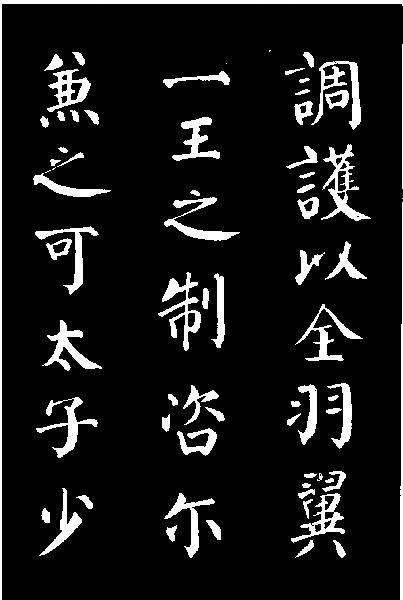 調護以全羽翼
一王之制咨尔
兼之可太子少